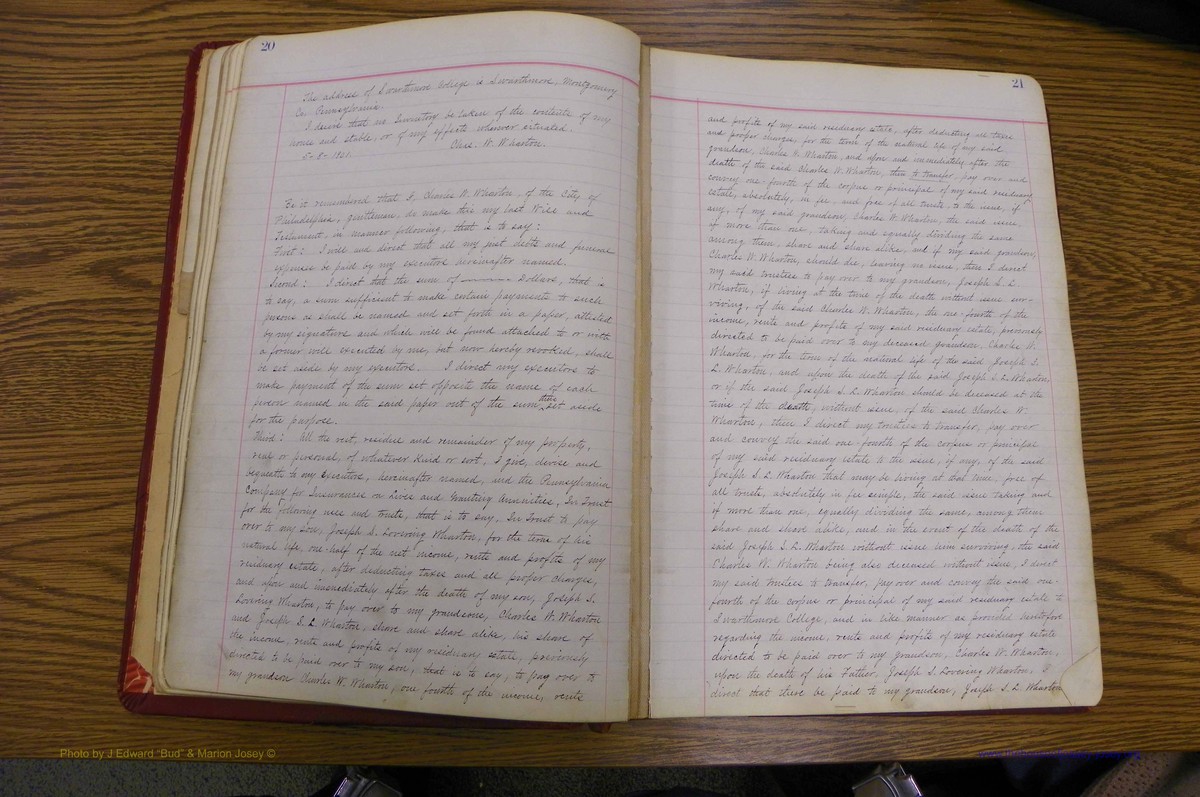 20
The address of Swarthmore College is Swarthmore, Montgomery
Co. Pennsylvania.
I desire that no Inventory be taken of the contents of my
house and stable, or of my effects wherever situated.
5-8-1901. Chas. W. Wharton.
Be it remembered that I, Charles W. Wharton, of the City of
Philadelphia, gentleman, do make this my last Will and
Testament, in manner following, that is to say:
First: I will and direct that all my just debts and funeral
expenses be paid by my executors hereinafter named.
Second: I direct that the sum of Dollars, that is
to say, a sum sufficient to make certain payments to such
persons as shall be named and set forth in a paper, attested
by my signature and which will be found attached to or with
a former will executed by me, but now hereby revoked, shall
be set aside by my executors. I direct my executors to
make payment of the sum set opposite the name of each
person named in the said paper out of the sum thus set aside
for the purpose.
Third: All the rest, residue and remainder of my property,
real or personal, of whatever kind or sort, I give, devise and
bequeath to my Executors, hereinafter named, and the Pennsylvania
Company for Insurances on Lives and Granting Annuities, In Trust
for the following uses and trusts, that is to say, In Trust to pay
over to my son, Joseph S. Lovering Wharton, for the term of his
natural life, one-half of the net income, rents and profits of my
residuary estate, after deducting taxes and all proper charges,
and upon and immediately after the death of my son, Joseph S.
Lovering Wharton, to pay over to my grandsons, Charles W. Wharton
and Joseph S. L. Wharton, share and share alike, his share of
the income, rents and profits of my residuary estate, previously
directed to be paid over to my son, that is to say, to pay over to
my grandson Charles W. Wharton, one fourth of the income, rents
21
and profits of my said residuary estate, after deducting all taxes
and proper charges, for the term of the natural life of my said
grandson, Charles W. Wharton, and upon and immediately after the
death of the said Charles W. Wharton, then to transfer, pay over and
convey one-fourth of the corpus or principal of my said residuary
estate, absolutely, in fee, and free of all trusts, to the issue, if
any, of my said grandson, Charles W. Wharton, the said issue,
if more than one, taking and equally dividing the same
among them, share and share alike, and if my said grandson,
Charles W. Wharton, should die, leaving no issue, then I direct
my said trustees to pay over to my grandson, Joseph S. L.
Wharton, if living at the time of the death without issue sur-
viving, of the said Charles W. Wharton, the one-fourth of the
income, rents and profits of my said residuary estate, previously
directed to be paid over to my deceased grandson, Charles W.
Wharton, for the term of the natural life of the said Joseph S.
L. Wharton, and upon the death of the said Joseph S. L. Wharton,
or if the said Joseph S. L. Wharton should be deceased at the
time of the death, without issue, of the said Charles W.
Wharton, then I direct my trustees to transfer, pay over
and convey the said one-fourth of the corpus or principal
of my said residuary estate to the issue, if any, of the said
Joseph S. L. Wharton that may be living at that time, free of
all trusts, absolutely in fee simple, the said issue taking and
if more than one, equally dividing the same, among them
share and share alike, and in the event of the death of the
said Joseph S. L. Wharton without issue him surviving, the said
Charles W. Wharton being also deceased without issue, I direct
my said trustees to transfer, pay over and convey the said one-
fourth of the corpus or principal of my said residuary estate to
Swarthmore College, and in like manner as provided heretofore
regarding the income, rents and profits of my residuary estate
directed to be paid over to my grandson, Charles W. Wharton,
upon the death of his Father, Joseph S. Lovering Wharton, I
direct that there be paid to my grandson, Joseph S. L. Wharton
Photo by J Edward "Bud" & Marion Josey ©